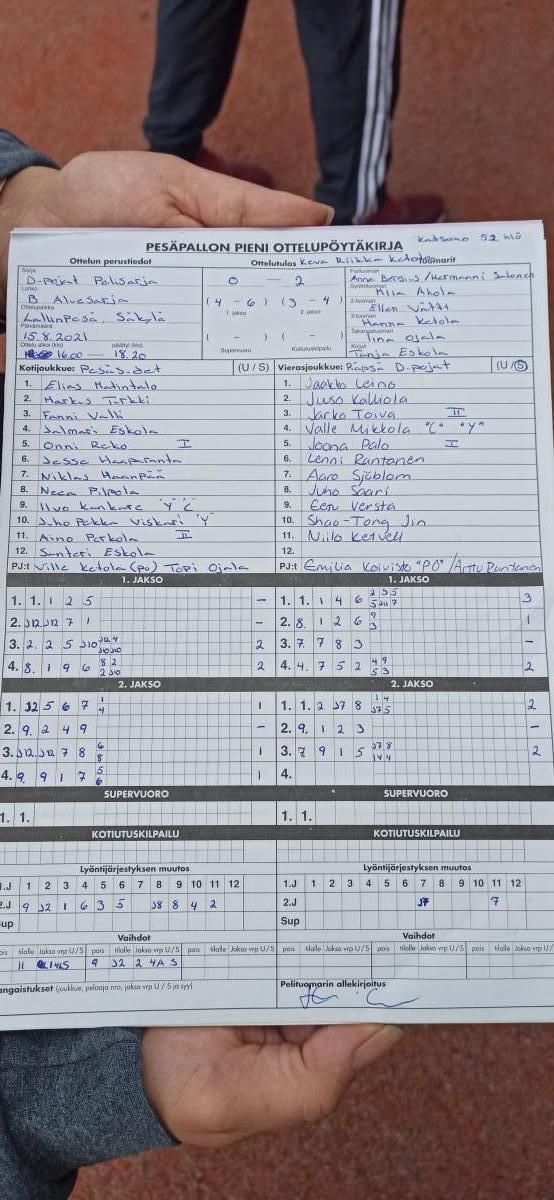 Katsomo 52 hlö
PESÄPALLON PIENI OTTELUPÖYTÄKIRJA
Ottelun perustiedot
Ottelutulos
Keva Riikka Ketola
Tuomarit
Sarja
D-pojat Pelisarja
0 — 2
Pelituomari
Anna Bergius/Hermanni Salonen
Lohko
B Aluesarja
(4 - 6) (3 - 4)
1. jakso 2. jakso
Syöttötuomari
Miia Ahola
Ottelupaikka
Lallinpesä Säkylä
2-tuomari
Ellen Vätti
3-tuomari
Hanna Ketola
Päivämäärä
15.8.2021
( - ) ( - )
Supervuoro Kotiutuskilpailu
Takarajatuomari
Iina Ojala
Ottelu alkoi (klo) päättyi (klo)
16.00 — 18.20
Kirjuri
Tanja Eskola
Kotijoukkue: Pesäs.det (U / S)
Vierasjoukkue: Räpsä D-pojat (U / S)
1. Elias Matintalo
2. Markus Tirkki
3. Fanni Valli
4. Jalmari Eskola
5. Onni Reko I
6. Jesse Haaparanta
7. Niklas Haanpää
8. Neea Pilpola
9. Ilvo Kankare "Y" C
10. Juho Pekka Viskari "Y"
11. Aino Perkola II
12. Santeri Eskola
PJ:t Ville Ketola (po) Topi Ojala
1. Jaakko Leino
2. Juuso Kalliola
3. Jarko Toiva II
4. Valle Mikkola "C" "Y"
5. Joona Palo I
6. Lenni Rantanen
7. Aaro Sjöblom
8. Juho Saari
9. Eetu Versta
10. Shao-Tong Jin
11. Niilo Ketvell
12.
PJ:t Emilia Koivisto "PO" /Arttu Rantanen
1. JAKSO
1. 1. 1 2 5 —
2. J12 J12 7 1 —
3. 2. 2 5 J10 J12 4 J10 J10 2
4. 8. 1 9 6 8 2 2 J10 2
1. JAKSO
1. 1. 1 4 6 2 3 5 5 J11 7 3
2. 8. 1 2 6 9 3 1
3. 7. 7 8 3 —
4. 4. 7 5 2 4 9 5 3 2
2. JAKSO
1. J2 5 6 7 1 4 1
2. 9. 2 4 9 —
3. J12 J12 7 8 6 8 1
4. 9. 9 1 7 5 6 1
2. JAKSO
1. 1. 2 J7 8 1 4 J7 5 2
2. 9. 1 2 3 —
3. 7 9 1 5 J7 8 1V 4 2
4.
SUPERVUORO
1. 1.
SUPERVUORO
1. 1.
KOTIUTUSKILPAILU
KOTIUTUSKILPAILU
Lyöntijärjestyksen muutos
1.J 1 2 3 4 5 6 7 8 9 10 11 12
2.J 9 J2 1 6 3 5 J8 8 4 2
Sup
Lyöntijärjestyksen muutos
1.J 1 2 3 4 5 6 7 8 9 10 11 12
2.J J7 7
Sup
Vaihdot
pois tilalle Jakso vrp U/S pois tilalle Jakso vrp U/S
9 J2 2 4A S
Vaihdot
pois tilalle Jakso vrp U/S pois tilalle Jakso vrp U/S
Rangaistukset (joukkue, pelaaja nro, jakso vrp U / S ja syy)
Pelituomarin allekirjoitus